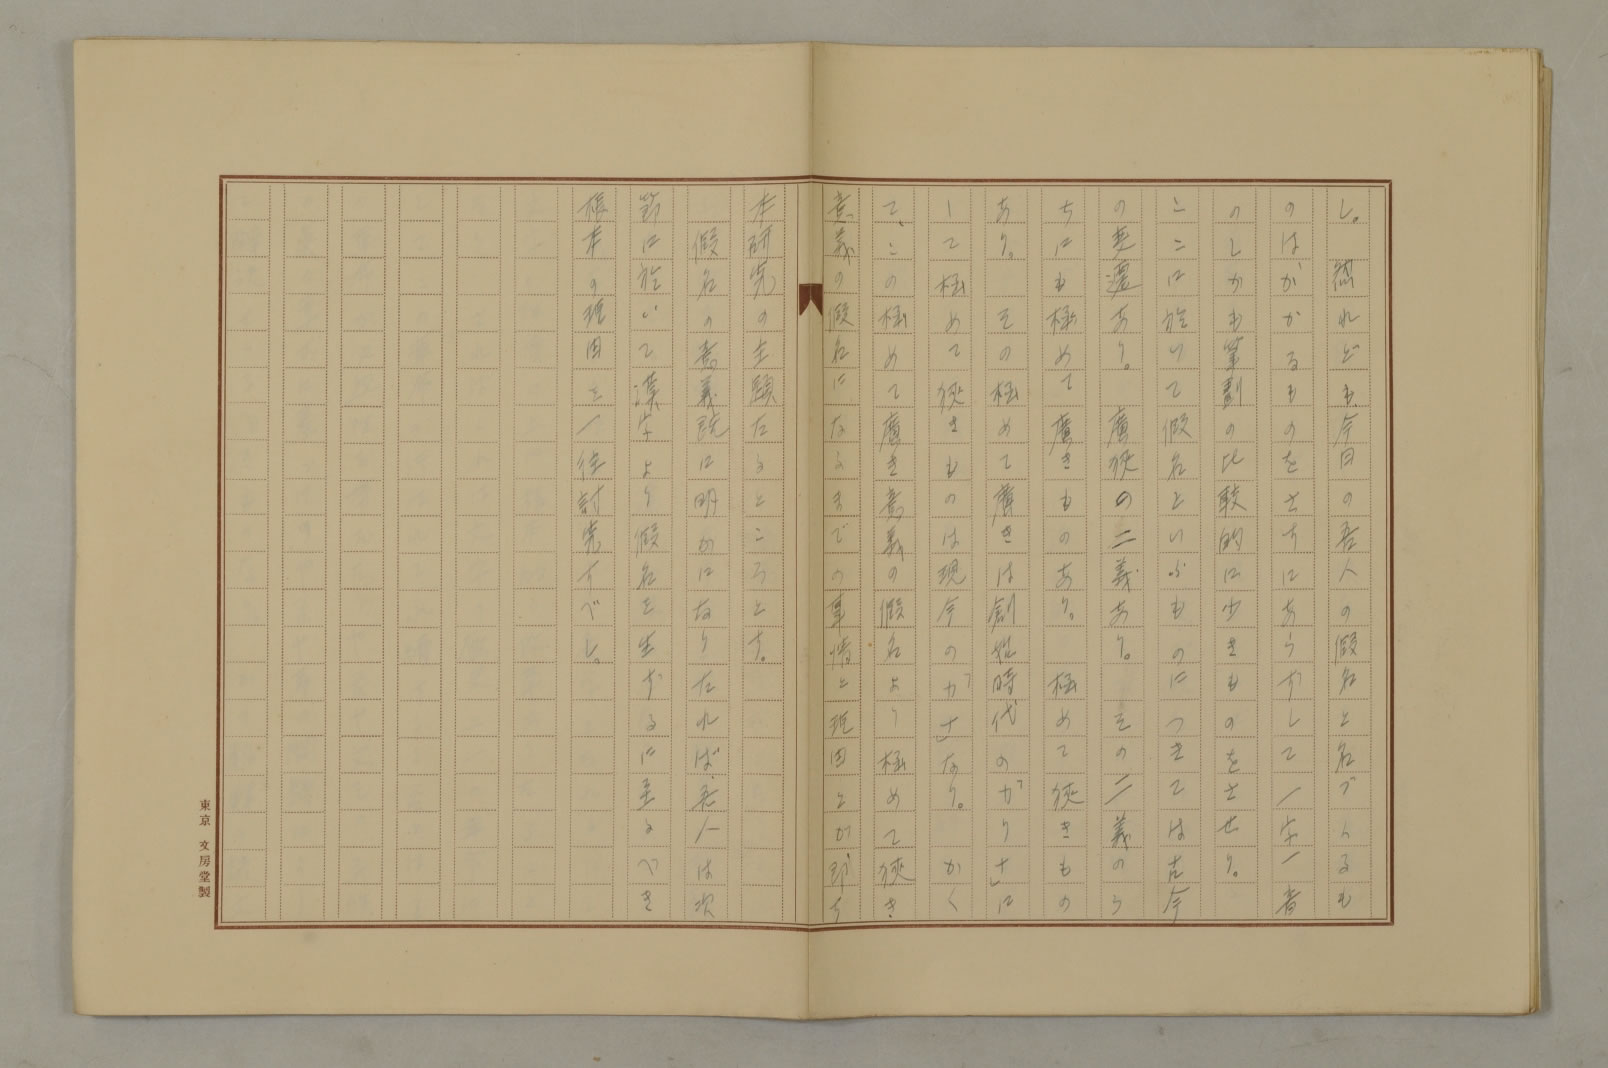 し。　然れども今日の吾人の假名と名づくるも
のはかかるものをさすにあらずして一字一音
のしかも筆劃の比較的に少きものをさせり。
ここに於いて假名といふものにつきては古今
の変遷あり。　廣狹の二義あり。　その二義のう
ちにも極めて廣きものあり。　極めて狹きもの
あり。　その極めて廣きは創始時代の「かりな」に
して極めて狹きものは現今の「かな」なり。　かく
て、この極めて廣き意義の假名より極めて狹き
意義の假名になるまでの事情と理由とが即ち
本研究の主題たるところとす。
假名の意義既に明かになりたれば、吾人は次
節に於いて漢字より假名を生ずるに至るべき
根本の理由を一往討究すべし。
東京　文房堂製